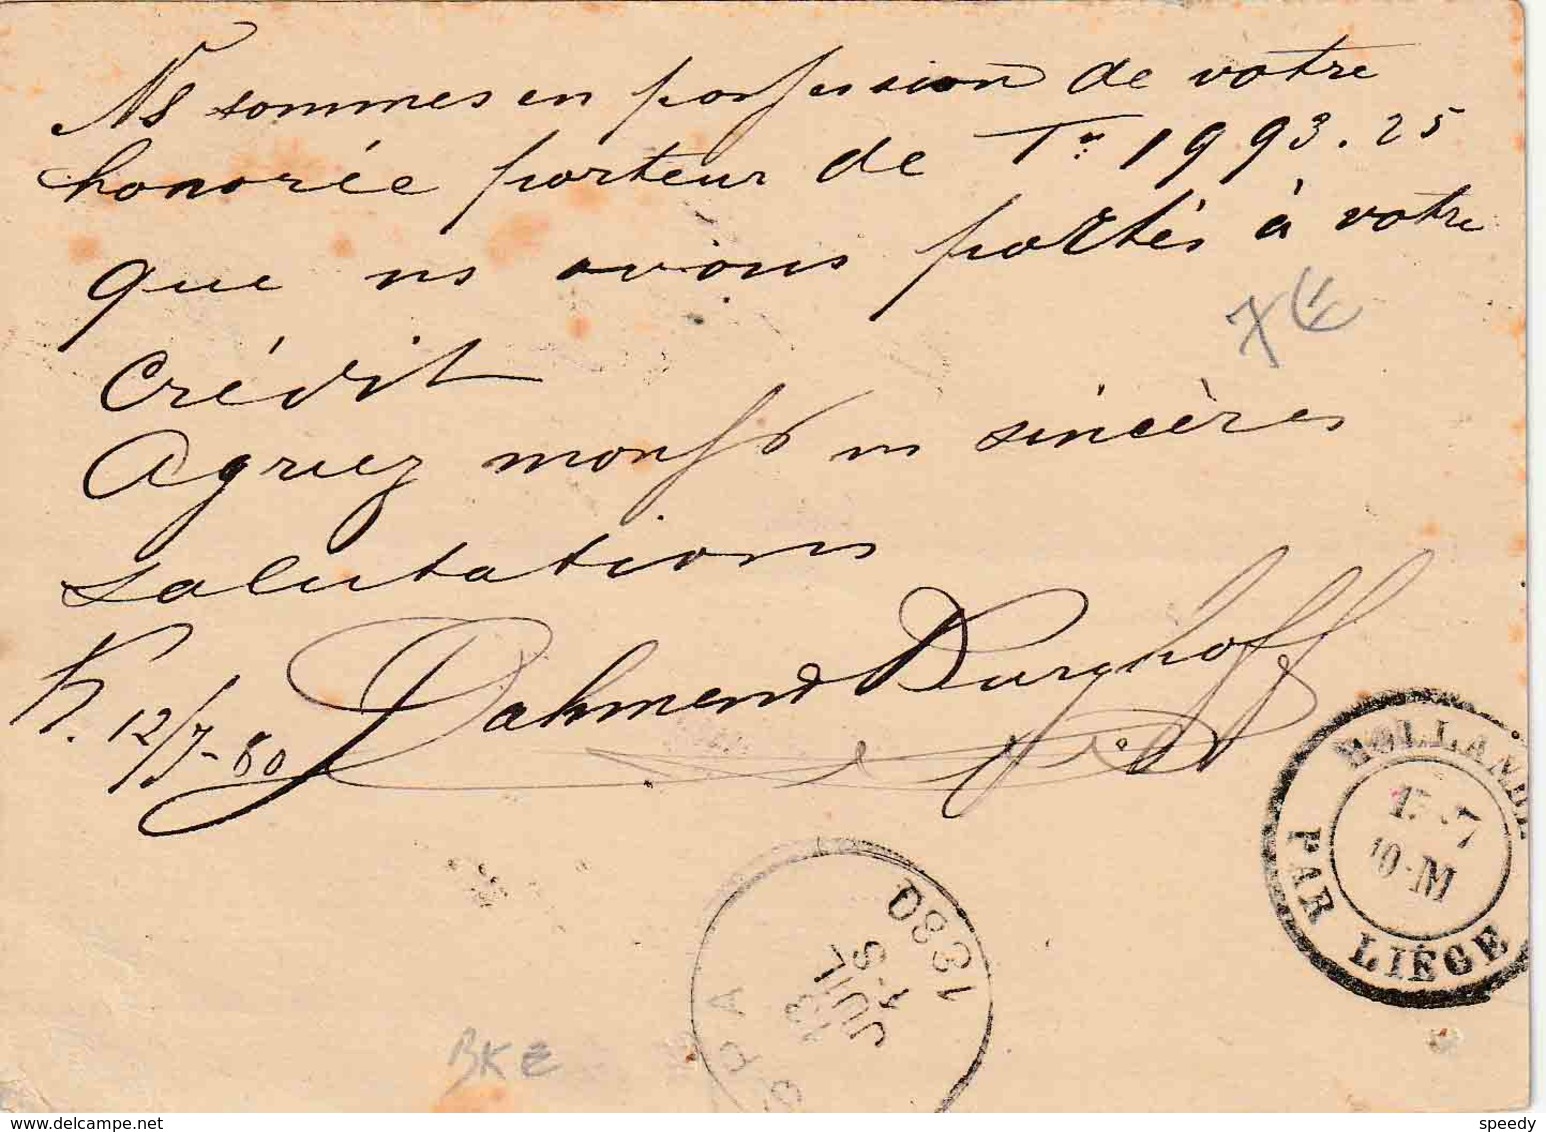 Ns sommes en possession de votre
honorée porteur de Fr 1993.25
que ns avons portés à votre
Crédit
Agréez monsr ns sincères
salutations
12/7-80 Dahmen & Burghoff
HOLLANDE
PAR LIÈGE
10-M
1880
JUIL
13
BKE
www.delcampe.net
speedy